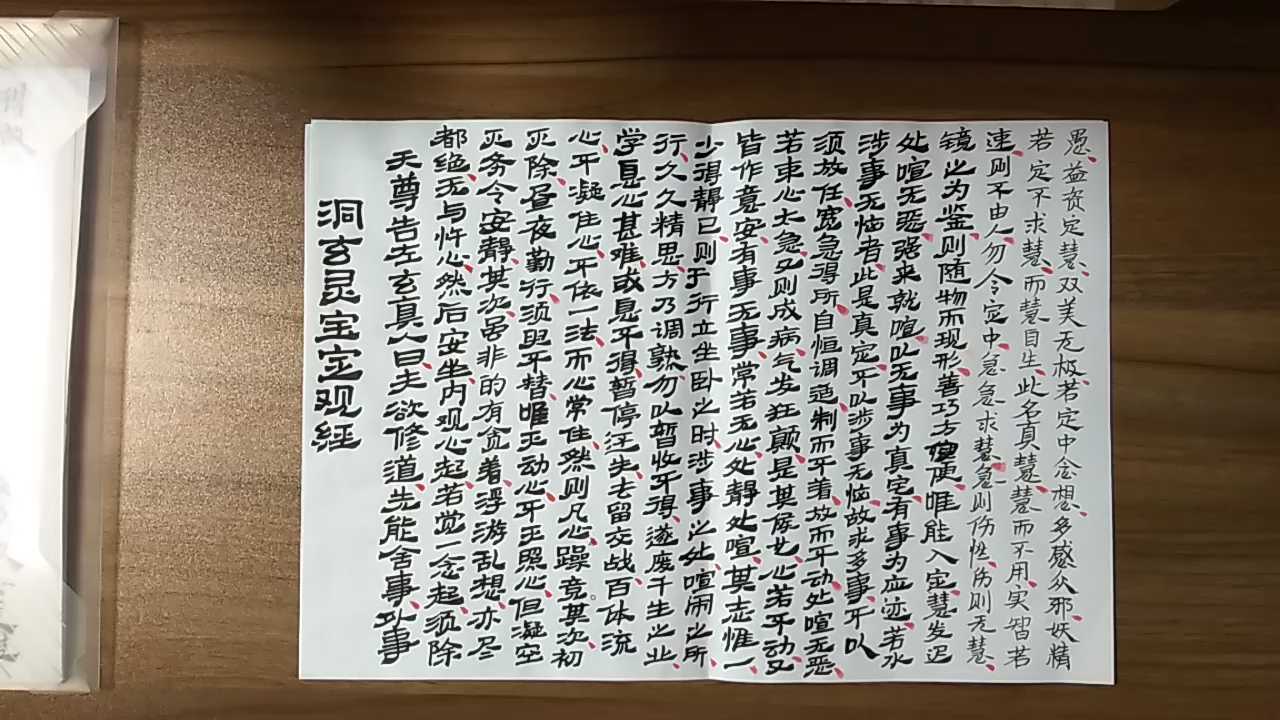 洞玄灵宝定观经
天尊告左玄真人曰夫欲修道先能舍事外事
都绝无与忤心然后安坐内观心起若觉一念起须除
灭务令安静其次虽非的有贪着浮游乱想亦尽
灭除昼夜勤行须臾不替唯灭动心不灭照心但凝空
心不凝住心不依一法而心常住然则凡心躁竞其次初
学息心甚难或息不得暂停还失去留交战百体流
行久久精思方乃调熟勿以暂收不得遂废千生之业
少得静已则于行立坐卧之时涉事之处喧闹之所
皆作意安有事无事常若无心处静处喧其志惟一
若束心太急又则成病气发狂颠是其候也心若不动又
须放任宽急得所自恒调适制而不着放而不动处喧无恶
涉事无恼者此是真定不以涉事无恼故求多事不以
处喧无恶强来就喧以无事为真定有事为应迹若水
镜之为鉴则随物而现形善巧方便唯能入定慧发迟
速则不由人勿令定中急急求慧急则伤性伤则无慧
若定不求慧而慧自生此名真慧慧而不用实智若
愚益资定慧双美无极若定中念想多感众邪妖精